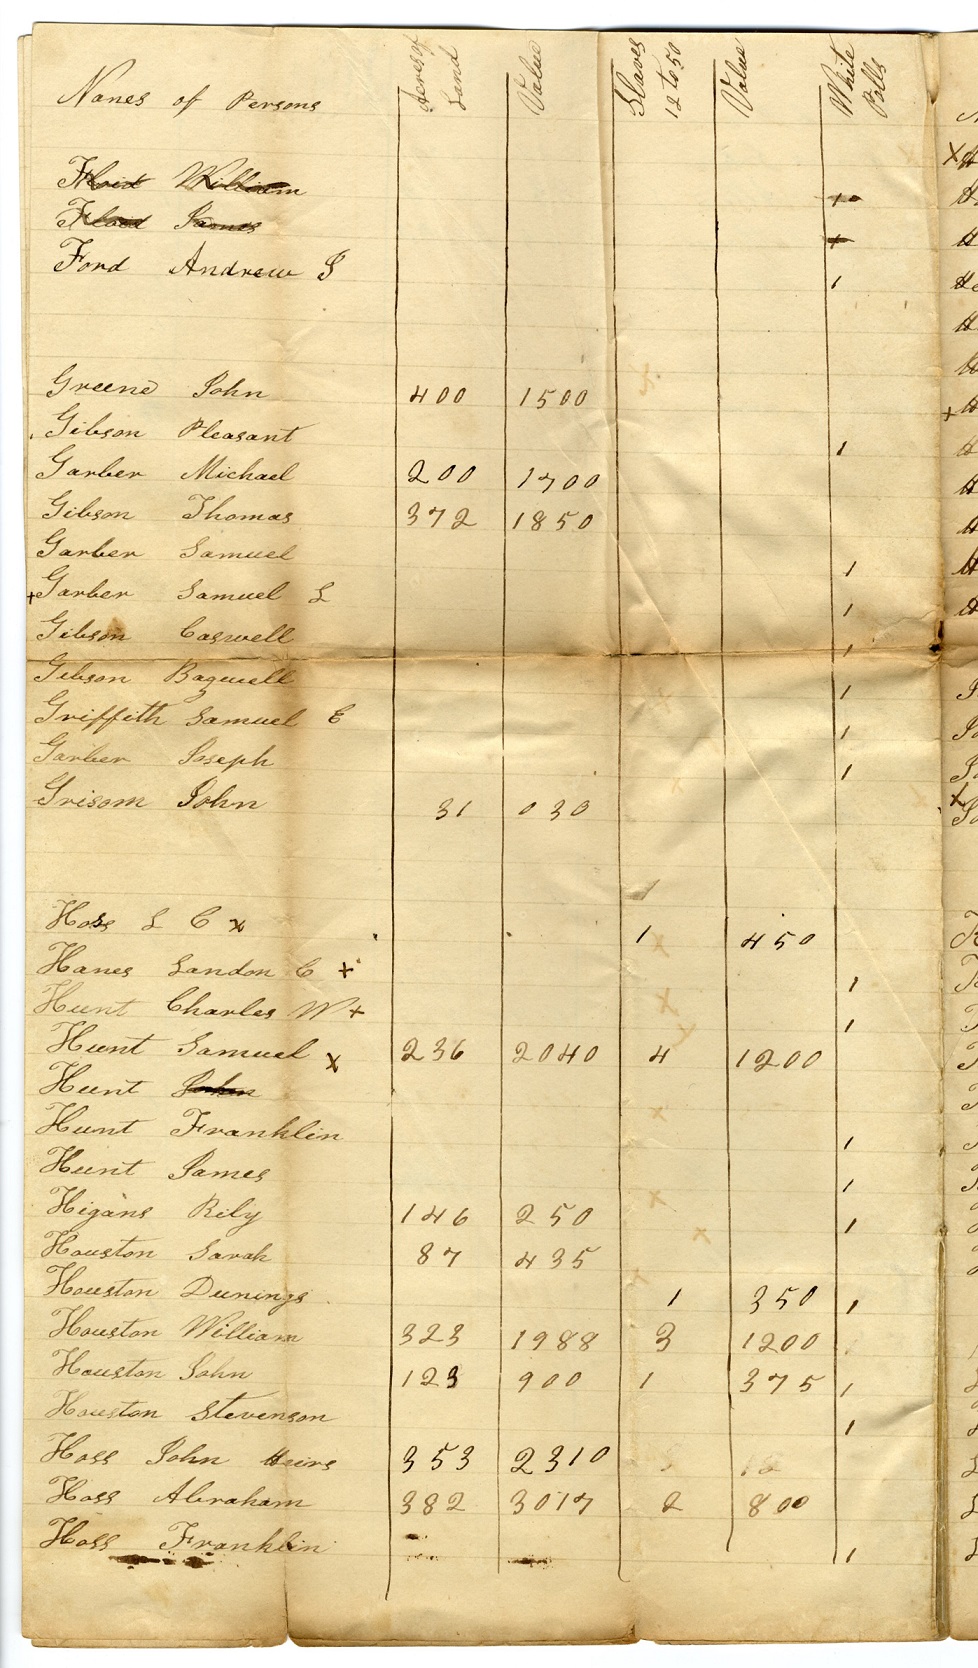 Names of Persons Acres of Land Value Slaves 12 to 50 Value White Polls
Floid William 1
Floid James 1
Ford Andrew J 1
Greene John 400 1500
Gibson Pleasant 1
Garber Michael 200 1700
Gibson Thomas 372 1850
Garber Samuel 1
+ Garber Samuel L 1
Gibson Caswell 1
Gibson Bagwell 1
Griffith Samuel E 1
Garber Joseph 1
Grisom John 31 030
Hoss L C x 1 450
Hanes Landon C + 1
Hunt Charles W + 1
Hunt Samuel x 236 2040 4 1200
Hunt John
Hunt Franklin 1
Hunt James 1
Higans Rily 146 250 1
Houston Sarah 87 435
Houston Dunings 1 350 1
Houston William 323 1988 3 1200
Houston John 123 900 1 375 1
Houston Stevenson 1
Hoss John Heirs 353 2310
Hoss Abraham 382 3017 2 800
Hoss Franklin 1